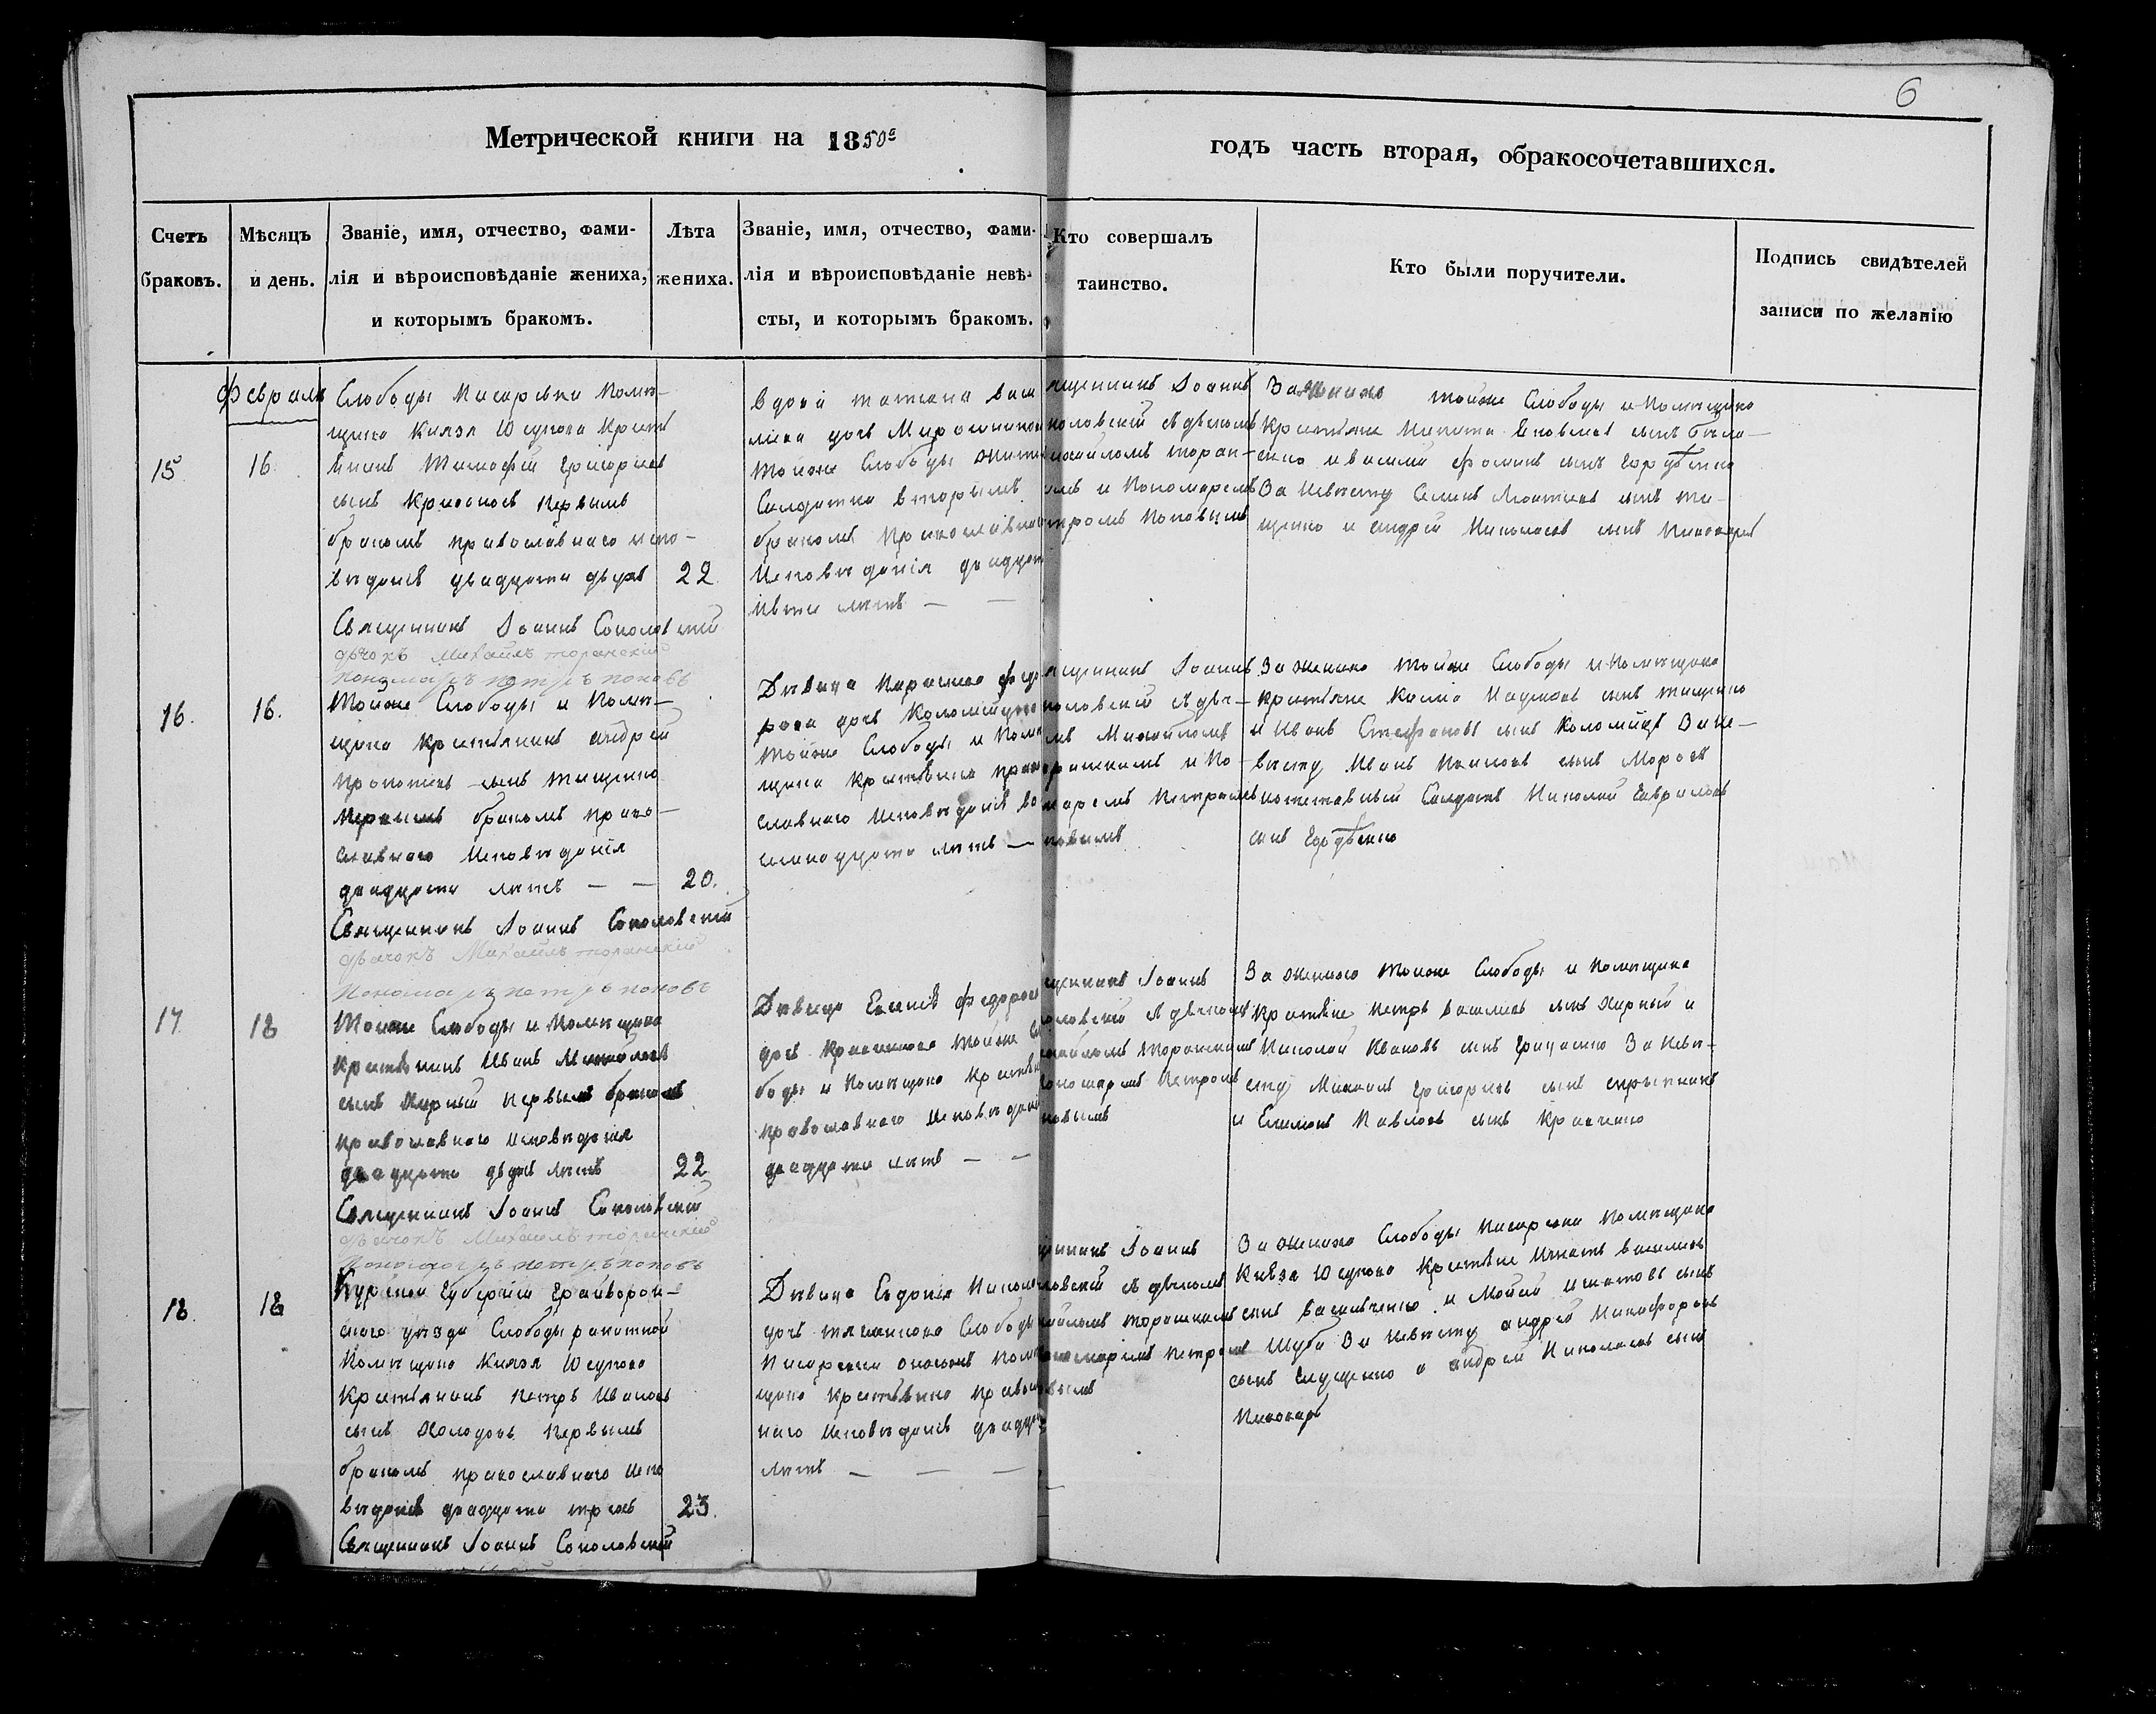 6
Метрической книги на 1850г
годъ часть вторая, обракосочетавшихся.
Счетъ браковъ.
Мѣсяцъ и день.
Званіе, имя, отчество, фами-
лія и вѣроисповѣданіе жениха,
и которымъ бракомъ.
Лѣта жениха.
Званіе, имя, отчество, фами-
лія и вѣроисповѣданіе невѣ-
сты, и которымъ бракомъ.
Кто совершалъ
таинство.
Кто были поручители.
Подпись свидѣтелей
записи по желанію
Февраля
15
16.
Слободы Писаревки Помѣ-
щика Князя Юсупова Кресть
янинъ Тимофій Григоріевъ
сынъ первымъ
бракомъ православнаго испо-
вѣданія двадцати двухъ
22
Священникъ Іоаннъ Соколовскій
дьчокъ Михаилъ торанскій
пономарь петръ поповъ
Вдова татіана васи
лiева дочь
Тойже Слободы
Солдатка вторымъ
бракомъ Православнаго
Исповѣданія двадцати
лѣтъ — —
ященникъ Іоаннъ
коловскій съ дьчкомъ
михаиломъ торан-
имъ и Пономаремъ
тромъ Поповымъ
За жениха тойже Слободы и Помѣщика
Крестьяне Никита сынъ
и василій фоминъ сынъ Гордѣенко
За Невѣсту сынъ Ти-
щенко и андрей Николаевъ сынъ
16.
16.
Тойже Слободы и Помѣ-
щика Крестьянинъ андрей
Прокопіевъ сынъ тищенко
первымъ бракомъ право-
славнаго Исповѣданія
двадцати лѣтъ — —
20.
Священникъ Іоаннъ Соколовскій
дьячокъ Михаилъ торанскій
Пономарь петръ поповъ
Дѣвица Параскева федо
рова дочь
тойже Слободы и Помѣ
щика Крестьянка право
славнаго Исповѣданія во
семнадцати лѣтъ —
ященникъ Іоаннъ
коловскій съ дьч-
мъ Михаиломъ
ранскимъ и По-
маремъ Петромъ
повымъ
За жениха тойже Слободы и Помѣщика
крестьяне Косма Наумовъ сынъ тищенко
и Иванъ Стефановъ сынъ Коломiйцъ За Не-
вѣсту Иванъ сынъ Морозъ
Солдатъ Николай Гавриловъ
сынъ Гордѣенко
17
18
Тойже Слободы и Помѣщика
Крестьянинъ Иванъ
сынъ Жирный первымъ бракомъ
православнаго исповѣданія
двадцати двухъ лѣтъ
22
Священникъ Іоаннъ Соколовскій
дьячокъ Михаилъ торанскій
Пономарь петръ поповъ
Дѣвица Ксенія Федорова
дочь тойже Сло
боды и Помѣщика Крестьян
православнаго исповѣдані
двадцати лѣтъ — —
щенникъ Іоаннъ
оловскій съ дьчкомъ
михаиломъ торанскимъ
пономаремъ Петромъ
повымъ
За жениха тойже Слободы и Помѣщика
Крестьяне петръ василіевъ сынъ Жирный и
Николай Ивановъ сынъ Грицаенко За Невѣ-
сту Михаилъ Григоріевъ сынъ
и Павловъ сынъ
18.
18
Курской Губерніи Грайворон-
скаго уѣзда Слободы ракитной
Помѣщика Князя Юсупова
Крестьянинъ петръ Ивановъ
сынъ первымъ
бракомъ православнаго испо
вѣданія двадцати трехъ
23.
Священникъ Іоаннъ Соколовскій
Дѣвица Евдокія
дочь Слободы
Писаревки Помѣ
щика Крестьянка правосла
внаго исповѣданія двадцати
лѣтъ — — —
щенникъ Іоаннъ
ловскій съ дьчкомъ
хаиломъ торанскимъ
ономаремъ петромъ
овымъ
За жениха Слободы писаревки Помѣщика
Князя Юсупова Крестьяне Игнатъ василіевъ
сынъ василченко и Мойсей игнатовъ сынъ
Шуба За невѣсту андрей Никифоровъ
сынъ и андрей Николаевъ сынъ